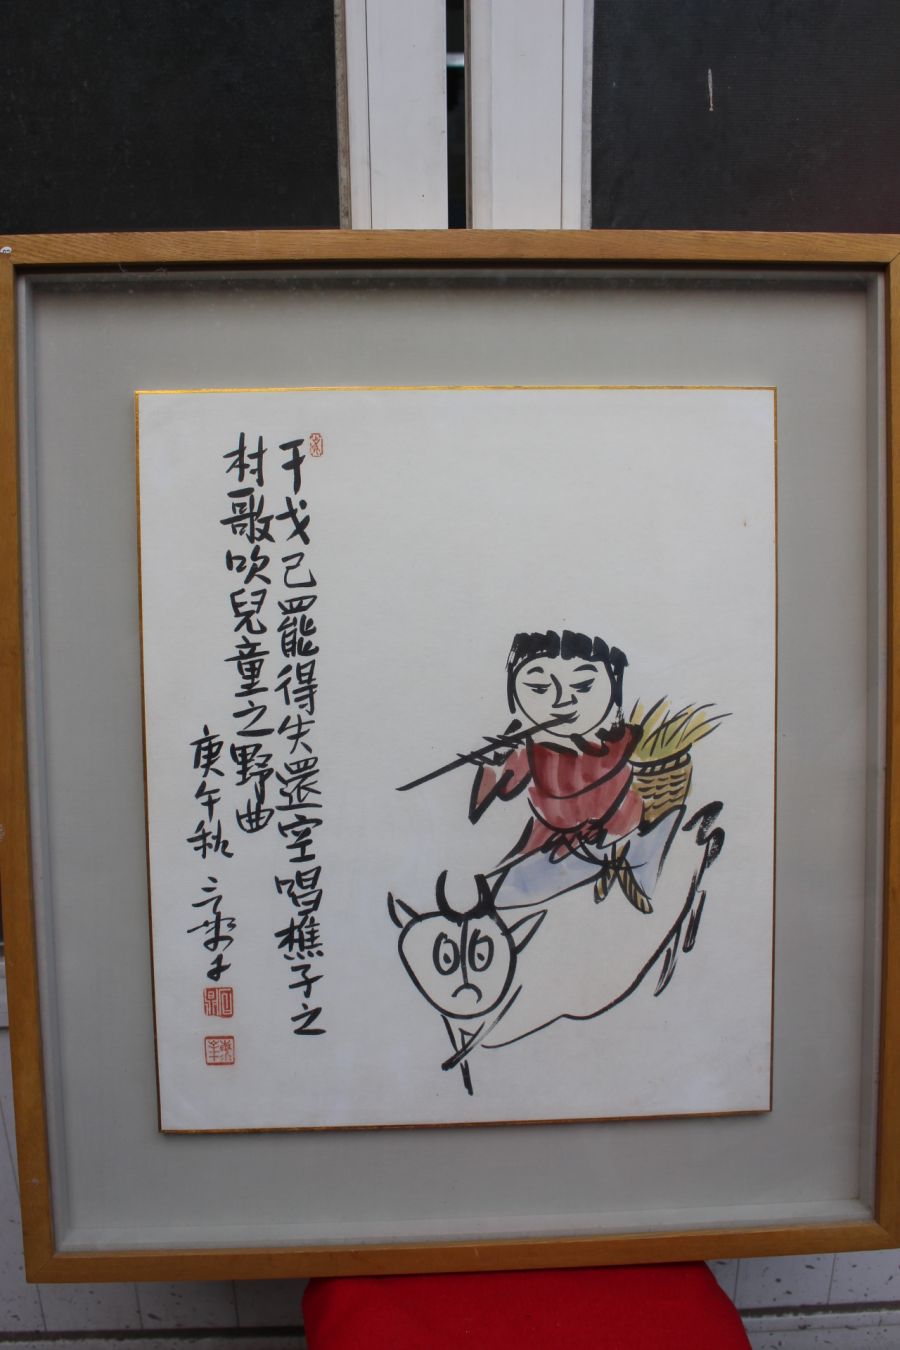 干戈已罷得失還空唱樵子之
村歌吹兒童之野曲
庚午秋